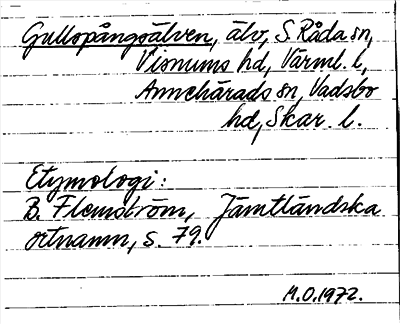 Gullspångsälven, älv, S. Råda sn,
Visnums hd, Värml. l,
Amnehärads sn, Vadsbo
hd, Skar. l.
Etymologi:
B. Flemström, Jämtländska
ortnamn, s. 79.
M.O.1972.